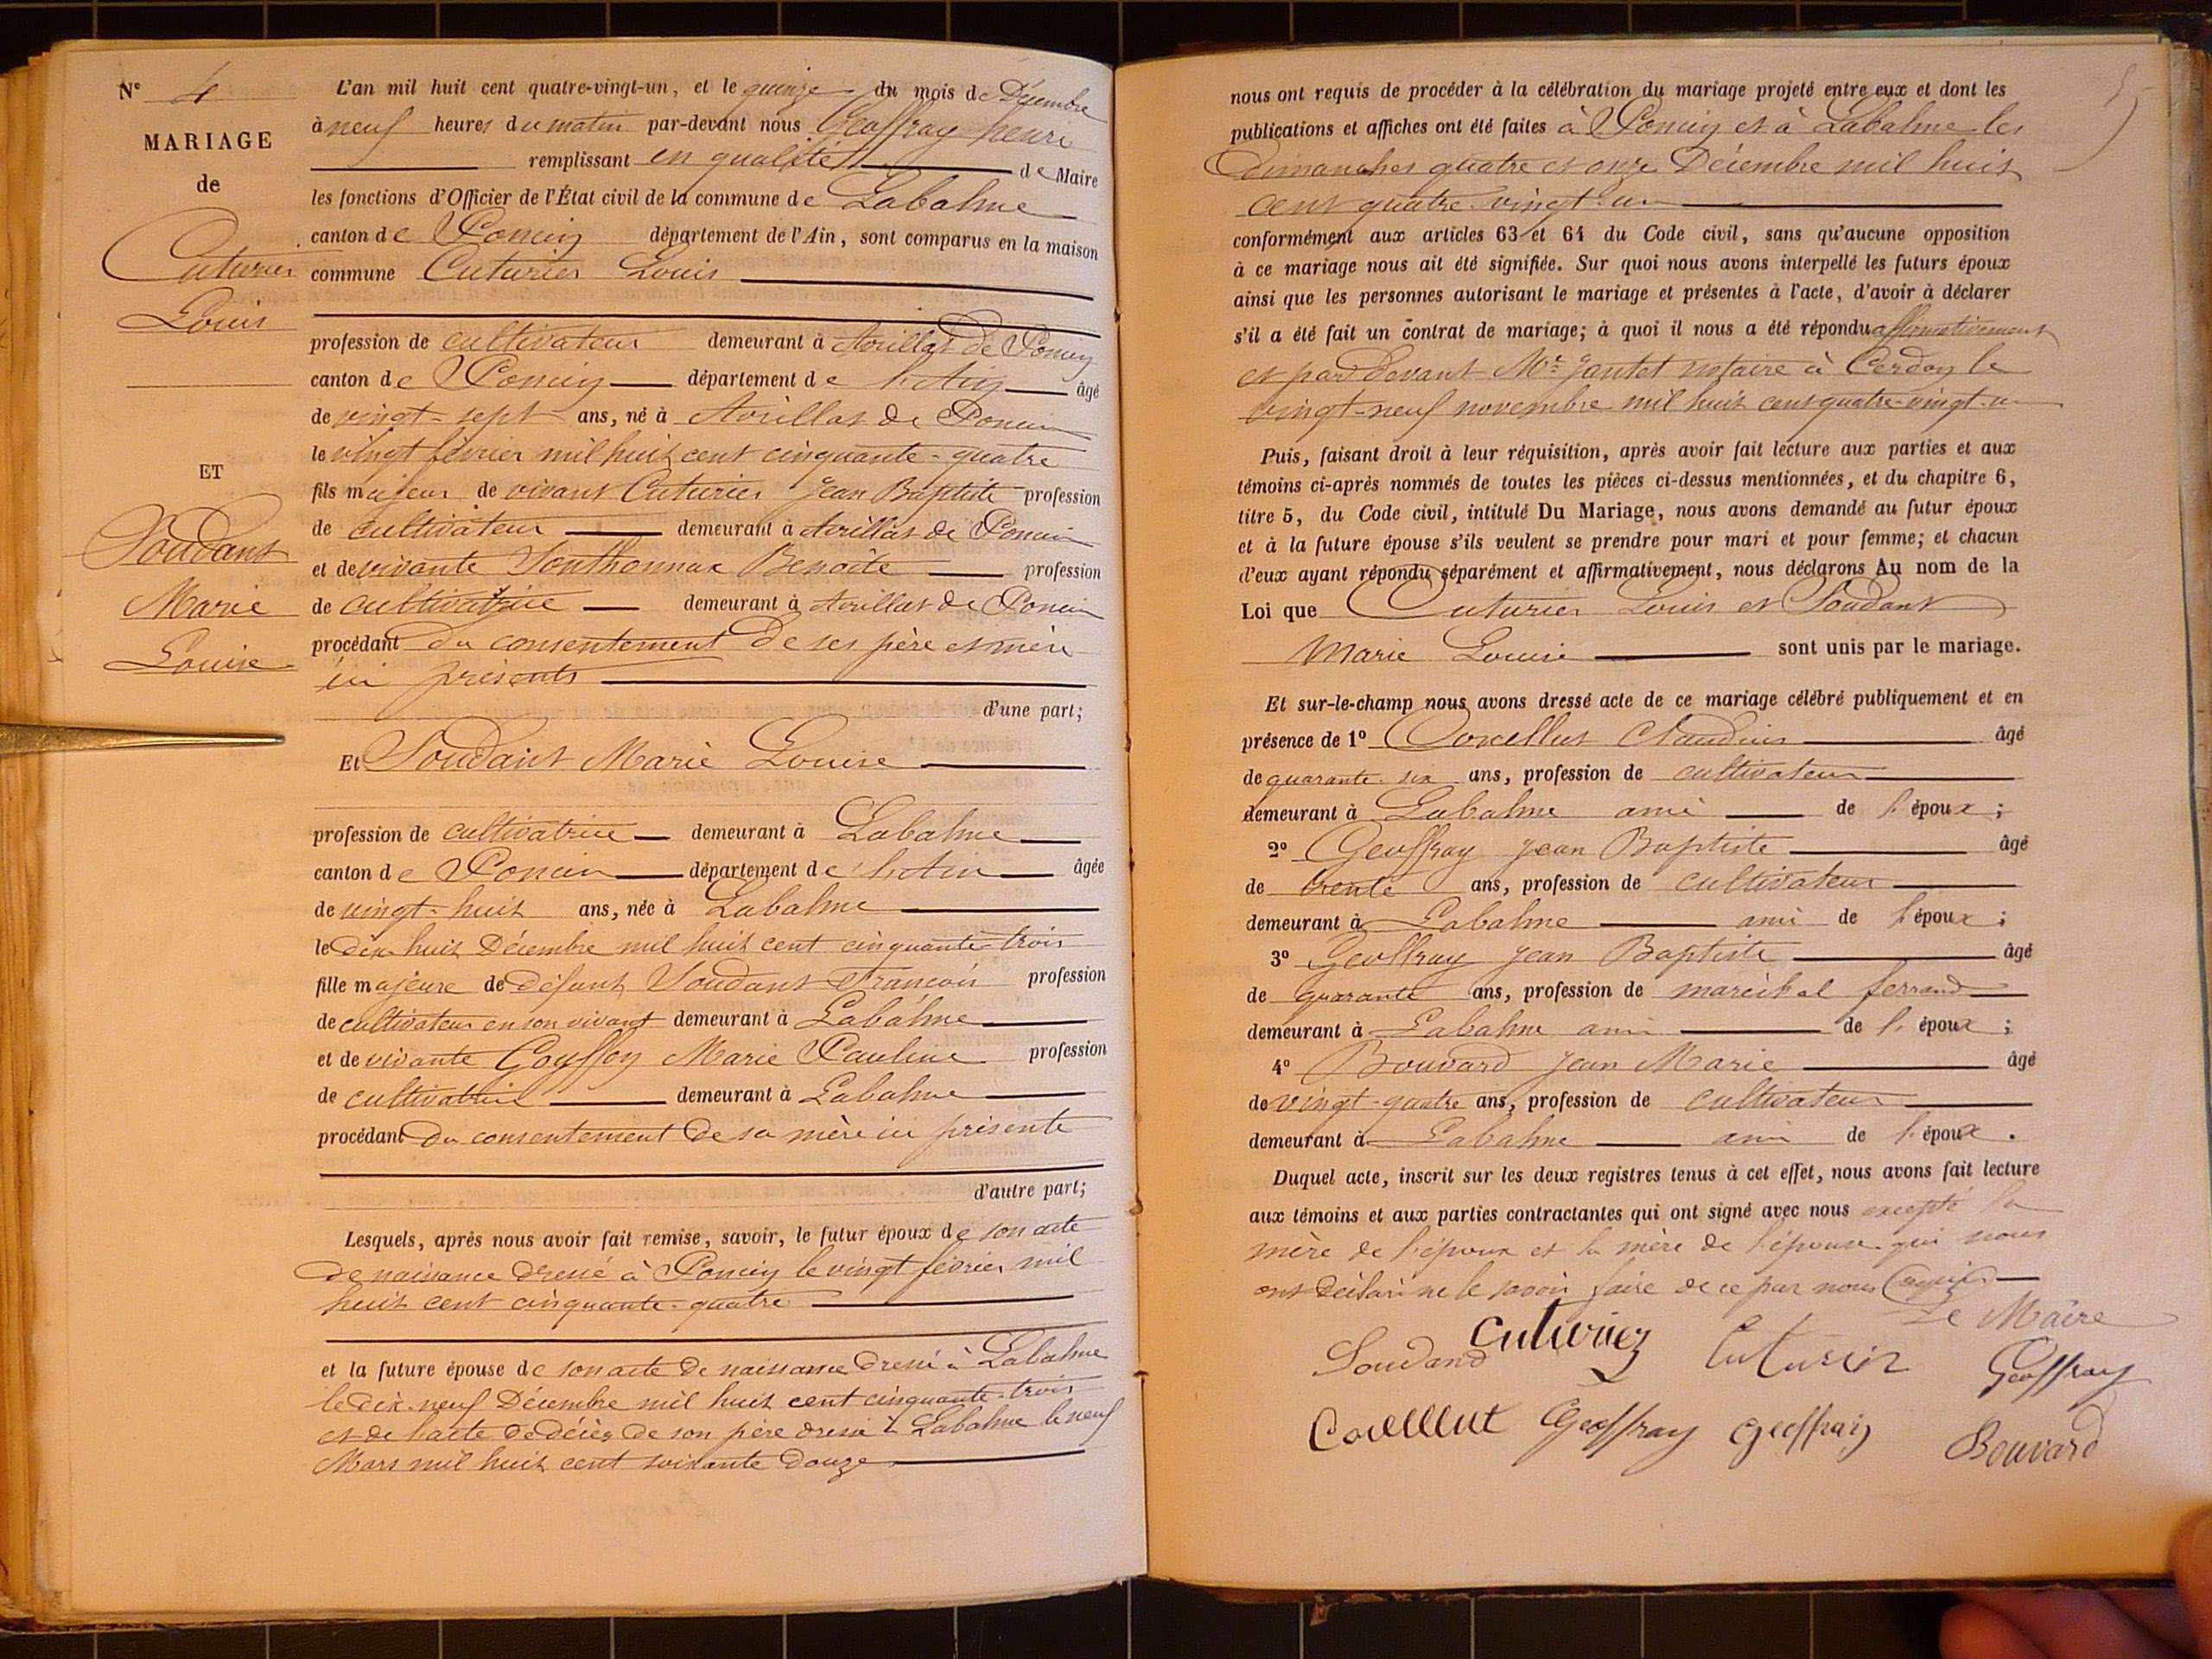 N° 4
MARIAGE
de
Cuturier
Louis
ET
Soudant
Marie
Louise
L'an mil huit cent quatre-vingt-un, et le quinze du mois de Décembre
à neuf heures du matin par-devant nous Geoffray henri
remplissant en qualité de Maire
les fonctions d'Officier de l'État civil de la commune de Labalme
canton de Poncin département de l'Ain, sont comparus en la maison
commune Cuturier Louis
profession de cultivateur demeurant à Avrillat de Poncin
canton de Poncin département de l'Ain âgé
de vingt-sept ans, né à Avrillat de Poncin
le vingt février mil huit cent cinquante-quatre
fils majeur de vivant Cuturier Jean Baptiste profession
de cultivateur demeurant à Avrillat de Poncin
et de vivante Sonthonnax Benoite profession
de cultivatrice demeurant à Avrillat de Poncin
procédant du consentement de ses père et mère
ici présents
d'une part;
Et Soudant Marie Louise
profession de cultivatrice demeurant à Labalme
canton de Poncin département de l'Ain âgée
de vingt-huit ans, née à Labalme
le dix huit Décembre mil huit cent cinquante-trois
fille majeure de défunt Soudant François profession
de cultivateur en son vivant demeurant à Labalme
et de vivante Goyffon Marie Pauline profession
de cultivatrice demeurant à Labalme
procédant du consentement de sa mère ici présente
d'autre part;
Lesquels, après nous avoir fait remise, savoir, le futur époux de son acte
de naissance dressé à Poncin le vingt février mil
huit cent cinquante-quatre
et la future épouse de son acte de naissance dressé à Labalme
le dix-neuf Décembre mil huit cent cinquante-trois
et de l'acte de décès de son père dressé à Labalme le neuf
Mars mil huit cent soixante douze
nous ont requis de procéder à la célébration du mariage projeté entre eux et dont les
publications et affiches ont été faites à Poncin et à Labalme les
dimanches quatre et onze Décembre mil huit
cent quatre-vingt-un
conformément aux articles 63 et 64 du Code civil, sans qu'aucune opposition
à ce mariage nous ait été signifiée. Sur quoi nous avons interpellé les futurs époux
ainsi que les personnes autorisant le mariage et présentes à l'acte, d'avoir à déclarer
s'il a été fait un contrat de mariage; à quoi il nous a été répondu affirmativement
et par devant Me Jantet notaire à Cerdon le
vingt-neuf novembre mil huit cent quatre-vingt-un
Puis, faisant droit à leur réquisition, après avoir fait lecture aux parties et aux
témoins ci-après nommés de toutes les pièces ci-dessus mentionnées, et du chapitre 6,
titre 5, du Code civil, intitulé Du Mariage, nous avons demandé au futur époux
et à la future épouse s'ils veulent se prendre pour mari et pour femme; et chacun
d'eux ayant répondu séparément et affirmativement, nous déclarons Au nom de la
Loi que Cuturier Louis et Soudant
Marie Louise sont unis par le mariage.
Et sur-le-champ nous avons dressé acte de ce mariage célébré publiquement et en
présence de 1° Corcellut Claudius âgé
de quarante-six ans, profession de cultivateur
demeurant à Labalme ami de l'époux;
2° Geoffray Jean Baptiste âgé
de trente ans, profession de cultivateur
demeurant à Labalme ami de l'époux;
3° Geoffray Jean Baptiste âgé
de quarante ans, profession de maréchal ferrand
demeurant à Labalme ami de l'époux;
4° Bouvard Jean Marie âgé
de vingt-quatre ans, profession de cultivateur
demeurant à Labalme ami de l'époux.
Duquel acte, inscrit sur les deux registres tenus à cet effet, nous avons fait lecture
aux témoins et aux parties contractantes qui ont signé avec nous excepté la
mère de l'époux et la mère de l'épouse qui nous
ont déclaré ne le savoir faire de ce par nous requis
Le Maire
Soudand Cuturier Cuturier Geoffray
Geoffray Geoffray Bouvard